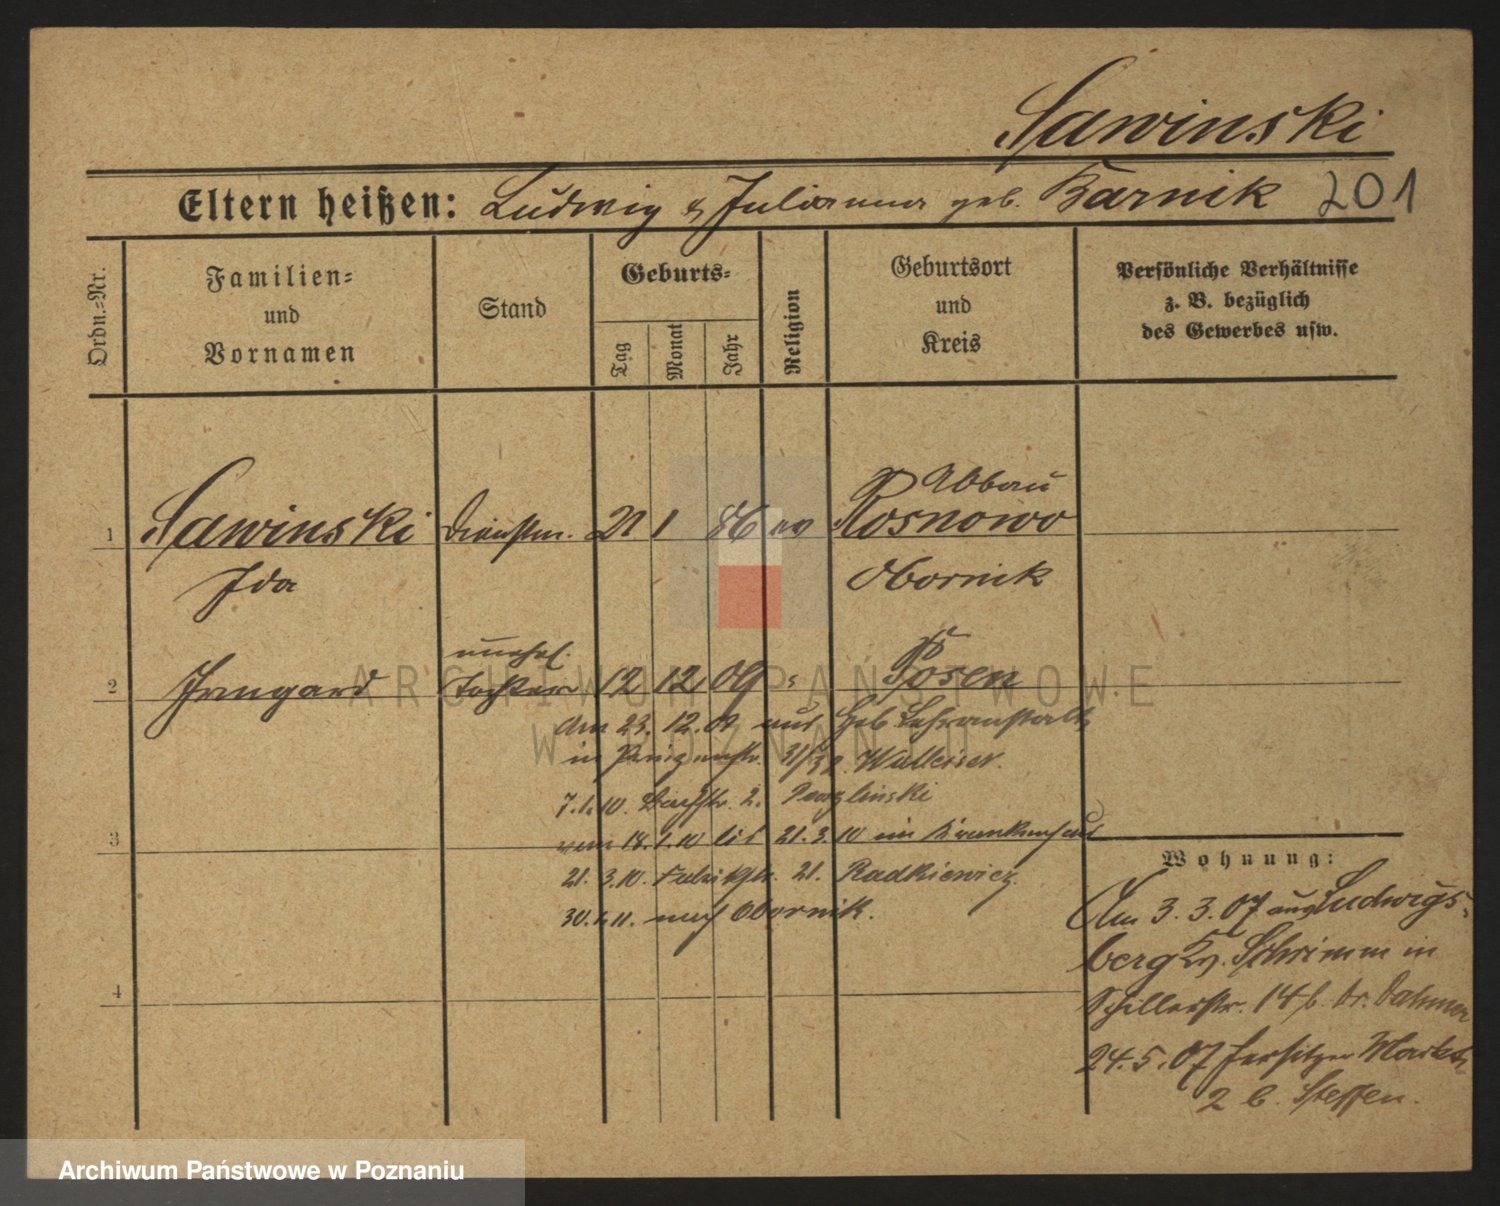 Sawinski
Eltern heißen: Ludwig & Julianna geb. Karnik 201
Ordn.=Nr.
Familien=
und
Vornamen
Stand
Geburts=
Tag
Monat
Jahr
Religion
Geburtsort
und
Kreis
Persönliche Verhältnisse
z. B. bezüglich
des Gewerbes usw.
Abbau
1 Sawinski Dienstm. 21 1 86 ev Rosnowo
Ida Obornik
unehel.
2 Irmgard Tochter 12 12 09 Posen
Am 23. 12. 09 aus Heb Lehranstalt
in Prinzenstr. 31/32. Walleiser.
7.1.10. 2.
vom 18. 10 bis 21. 3. 10 im Krankenhaus
3
21. 3. 10. Fabrikstr. 21. Radkiewicz.
30. 11. nach Obornik.
4
Wohnung:
Am 3. 3. 07 aus Ludwigs=
berg Kr. Schrimm in
Schillerstr. 14 b. Dr.
24. 5. 07 Jersitzer Markt
2 b. Steffen.
ARCHIWUM PAŃSTWOWE
W POZNANIU
Archiwum Państwowe w Poznaniu